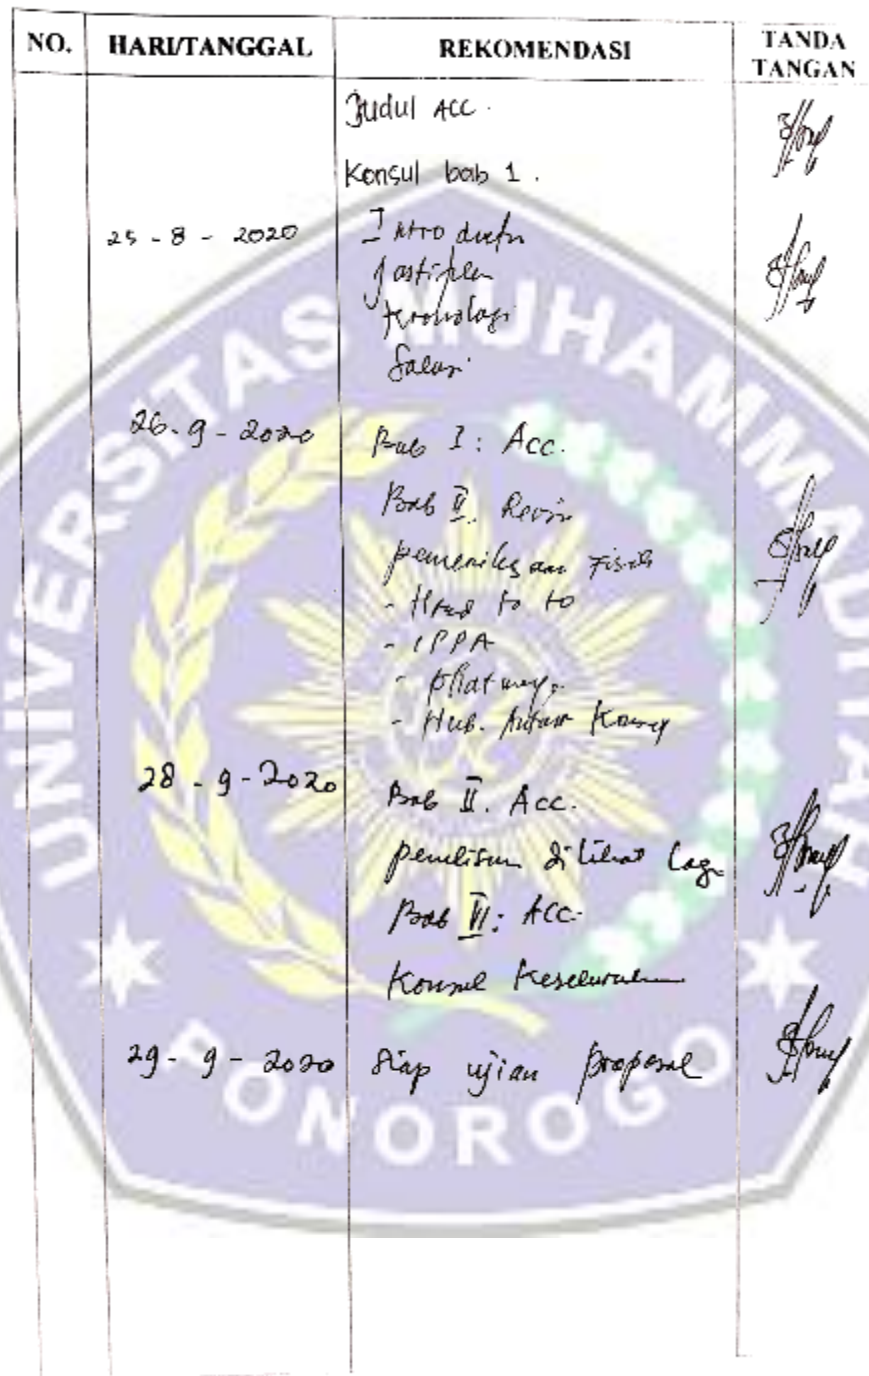 NO. HARI/TANGGAL REKOMENDASI TANDA TANGAN
Judul ACC.
Konsul bab 1.
25 - 8 - 2020 Introduksi
Justifikasi
Kronologi
Solusi
26 - 9 - 2020 Bab I : Acc.
Bab II. Revisi
pemeriksaan Fisik
- Head to to
- IPPA
- Phatway
- Hub. Antar Konsep
28 - 9 - 2020 Bab II. Acc.
penulisan dilihat lagi
Bab III : Acc.
Konsul Keseluruhan
29 - 9 - 2020 Siap ujian proposal
UNIVERSITAS MUHAMMADIYAH
PONOROGO